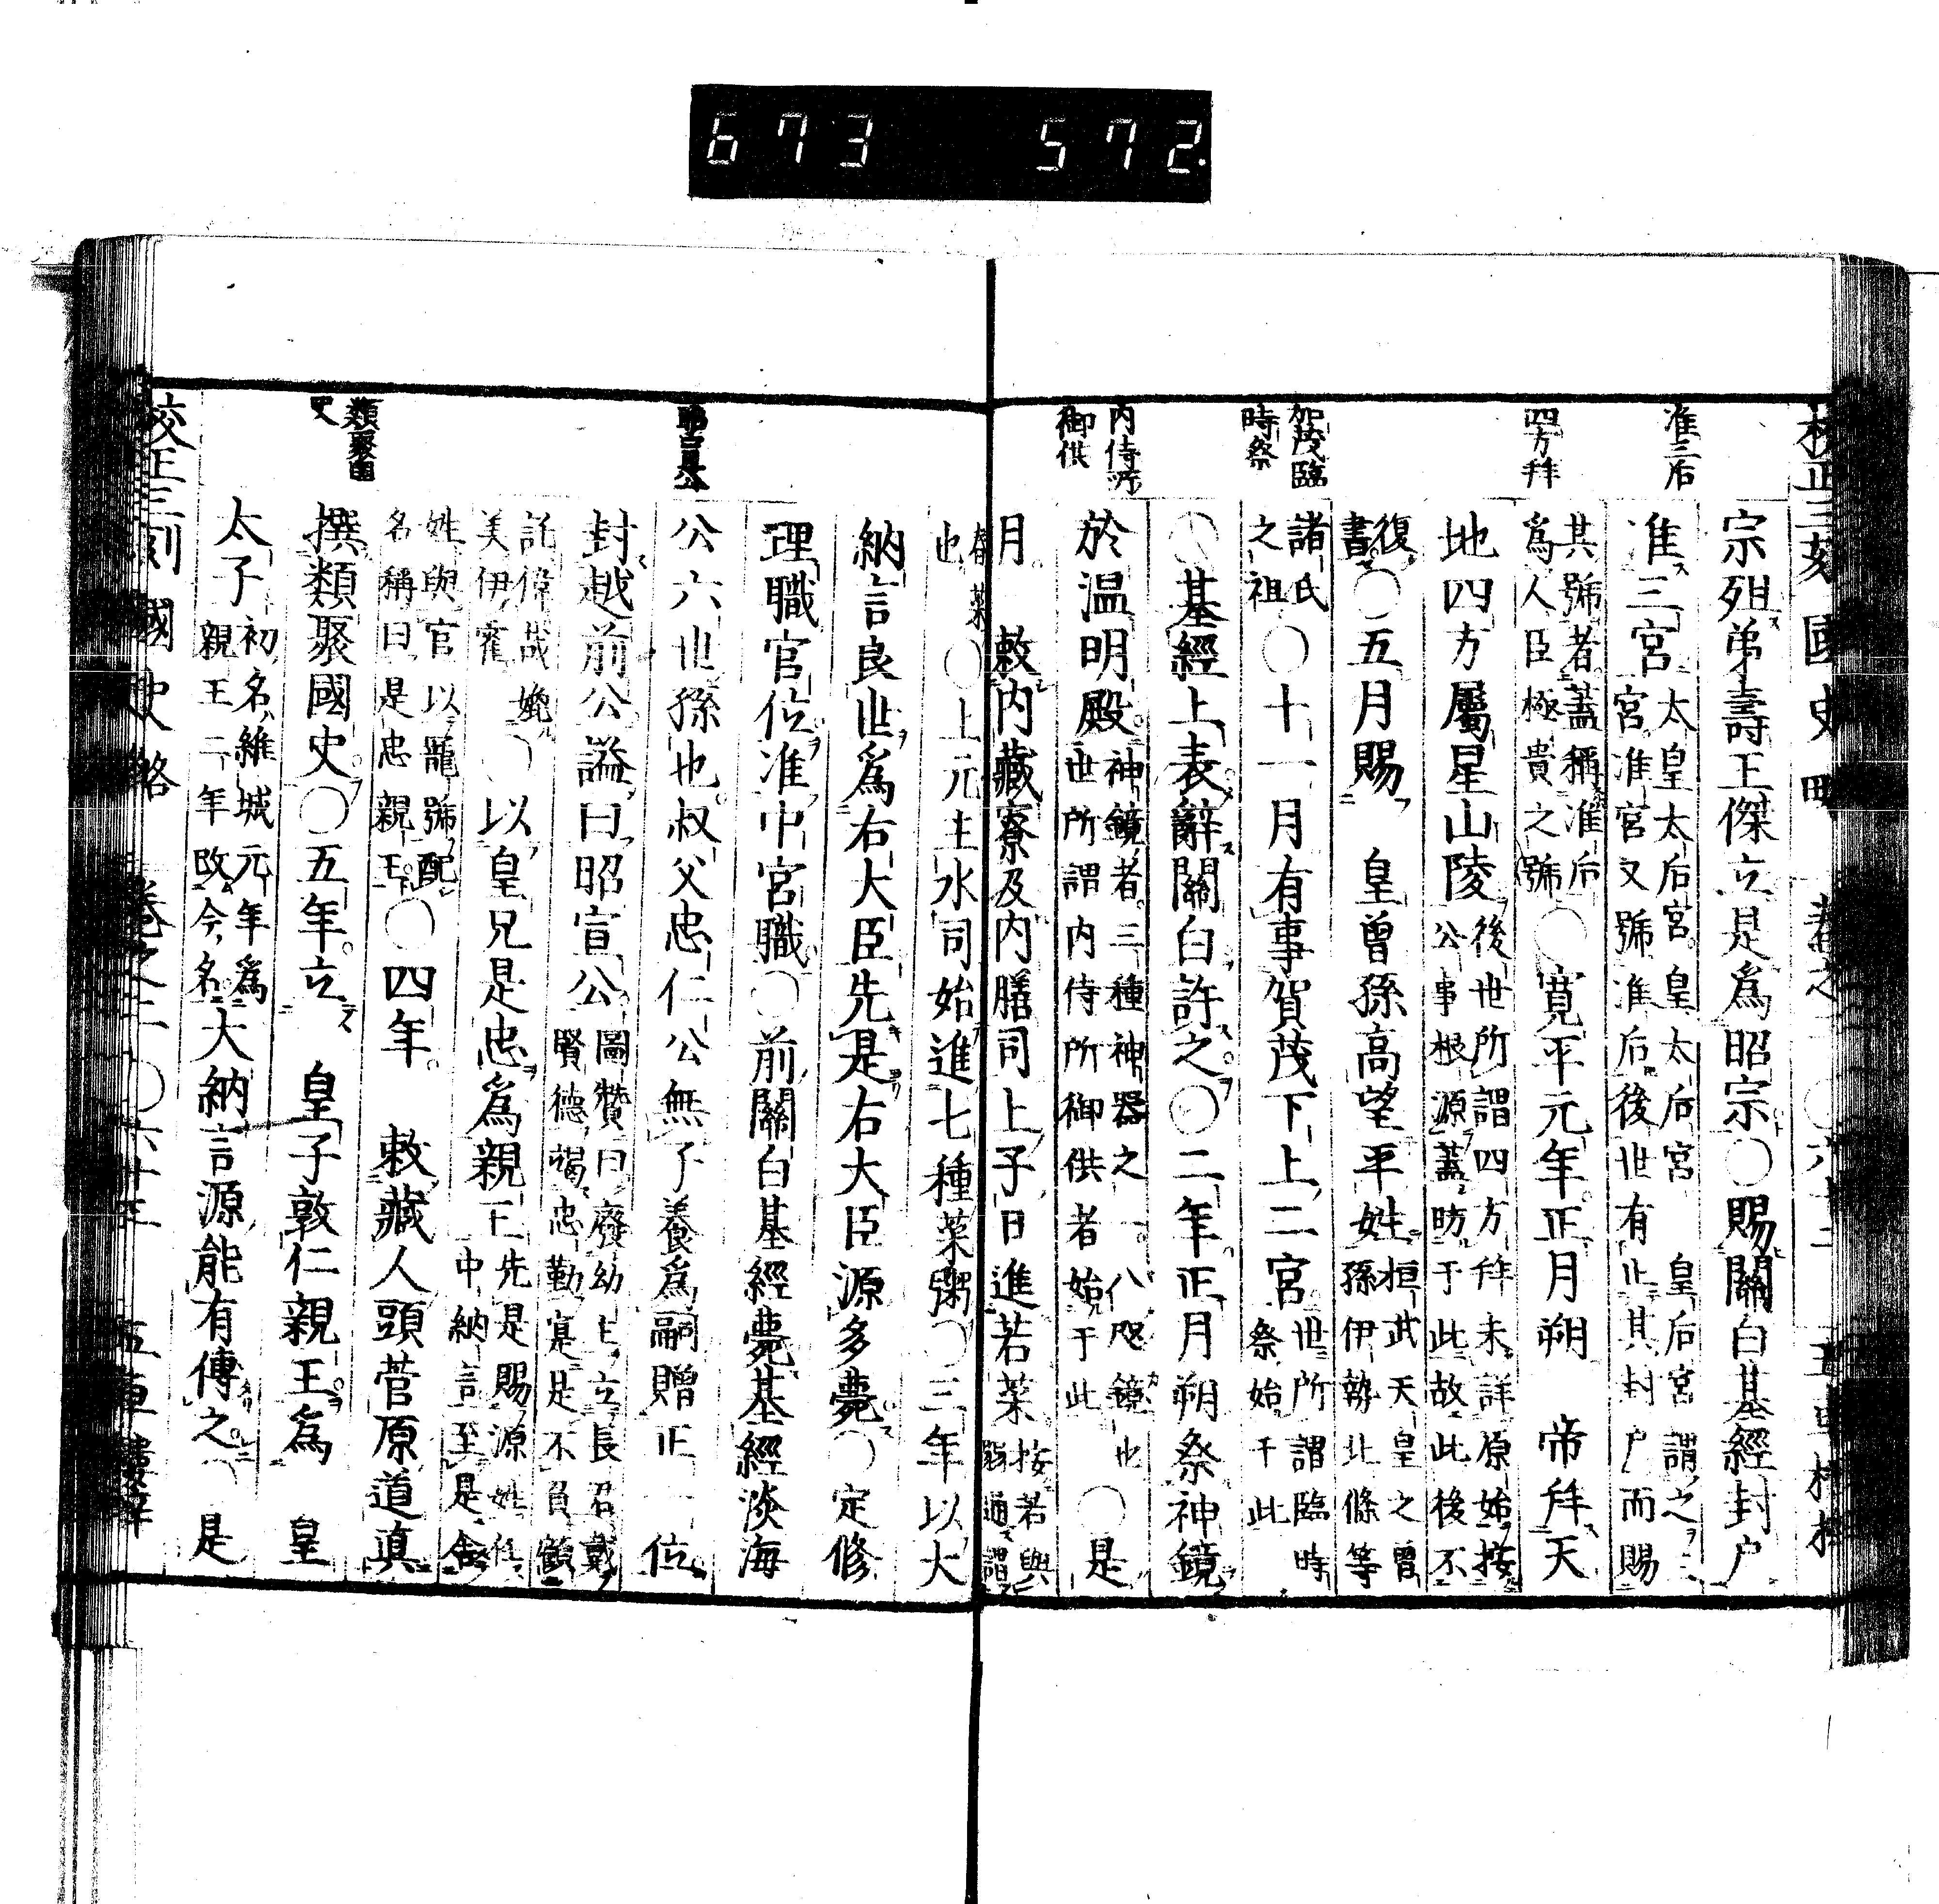 673 572
准三后
四方拜
賀茂臨
時祭
内侍所
御供
宗殂弟壽王傑立是爲昭宗〇賜關白基經封户
准三宮太皇太后宮皇太后宮皇后宮謂之三
宮准宮又號准后後世有止其封户而賜
其號者蓋稱准后
爲人臣極貴之號〇寛平元年正月朔 帝拜天
地四方屬星山陵後世所謂四方拜未詳原始按
公事根源蓋昉于此故此後不
復
書〇五月賜 皇曾孫高望平姓桓武天皇之曾
孫伊勢北條等
諸氏
之祖〇十一月有事賀茂下上二宮世所謂臨時
祭始于此
〇基經上表辭關白許之〇二年正月朔祭神鏡
於温明殿神鏡者三種神器之一八咫鏡也
世所謂内侍所御供者始于此〇是
月 敕内藏寮及内膳司上子日進若菜按若與
通謂
春菜
也〇上元主水司始進七種菜粥〇三年以大
納言良世爲右大臣先是右大臣源多薨〇定修
理職官位准中宮職〇前關白基經薨基經淡海
公六世孫也叔父忠仁公無子養爲嗣贈正一位
封越前公謚曰昭宣公圖贊曰廢幼主立長君戴
賢德竭忠勤寔是不負顧
託偉哉媲
美伊霍〇以皇兄是忠爲親王先是賜源姓任
中納言至是舍
姓與官以寵號配
名稱曰是忠親王〇四年 敕藏人頭菅原道真
撰類聚國史〇五年立 皇子敦仁親王爲 皇
太子初名維城元年爲
親王二年改今名大納言源能有傳之〇是
昭宣公
類聚國
史
校正三刻國史略 卷之二 〇六十三 五車樓梓